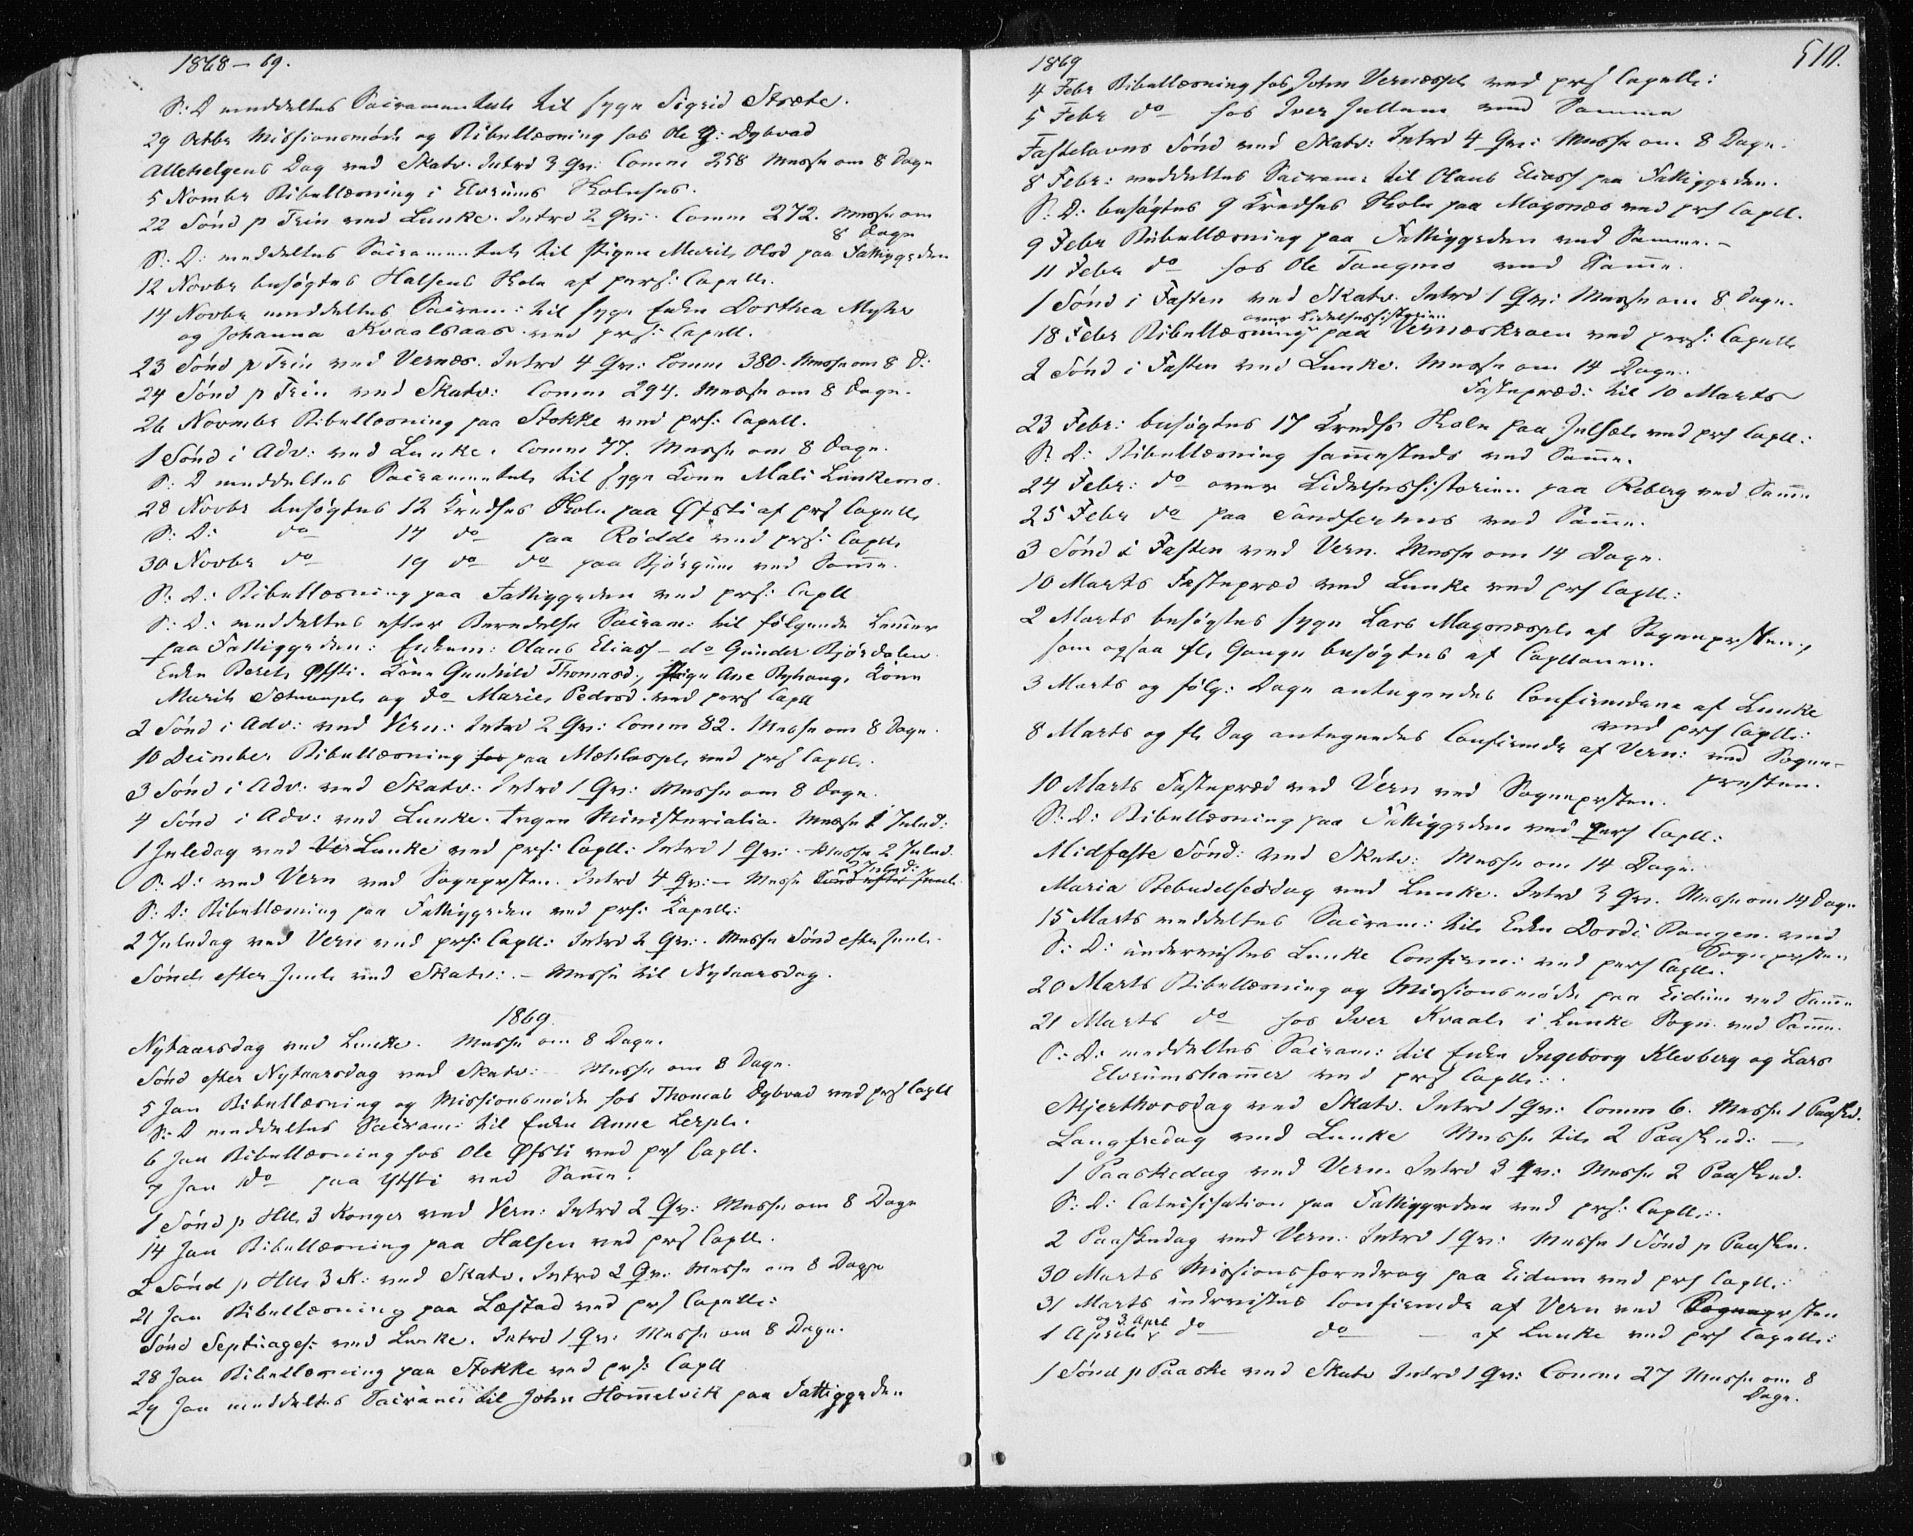 1868-69.
S: D meddeltes Sacramentet til syge Sigrid Stræte.
29 Octbr Missionsmøde og Bibellæsning hos Ole Dybvad
Allehelgens Dag ved Skatv. Introd 3 Qv: Comm 258 Messe om 8 Dage
5 Novmbr Bibellæsning i Elvrums Skolehus.
22 Sønd p Trin ved Lunke. Introd 2 Qv: Comm 272. Messe om
8 Dage
S: D: meddeltes Sacramentet til Pigen Marit Olsd paa Fattiggrden
12 Novbr besøgtes Halsens Skole af pers: Capell.
14 Novbr meddeltes Sacram: til syge Enke Dorthea Myhr
og Johanna Kvaalsaas ved prs: Capell.
23 Sønd p Trin ved Vernæs. Introd 4 Qv: Comm 380. Messe om 8 D:
24 Sønd p Trin ved Skatv: Comm 294. Messe om 8 Dage.
26 Novembr Bibellæsning paa Stokke ved prs: Capell.
1 Sønd i Adv: ved Lunke. Comm 77. Messe om 8 Dage.
S: D meddeltes Sacramentet til syge Kone Mali Lunkemo.
28 Novbr besøgtes 12 Kredses Skole paa Øfsti af prs Capell.
S: D: do 14 do paa Rødde ved prs: Capell.
30 Novbr do 19 do do paa Bjørgum ved Samme.
S: D: Bibellæsning paa Fattiggrden ved prs: Capll
S: D: meddeltes efter Beredelse Sacram: til følgende Lemmer
paa Fattiggrden: Enkem: Olaus Eliass - do Gunder Bjørdalen.
Enke Beret Øfsti. Kone Gunhild Thomasd., Pige Ane Byhaug, Kone
Marit Sætnanpl. og do Marie Pedersd. ved pers Capll
2 Sønd i Adv: ved Vern: Introd 2 Qv: Comm 82. Messe om 8 Dage.
10 December Bibellæsning hos paa Mæhlaspl. ved prs Capll.
3 Sønd i Adv: ved Skatv: Introd 1 Qv: Messe om 8 Dage.
4 Sønd i Adv: ved Lunke. Ingen Ministerialia. Messe 1 Juled:
1 Juledag ved Ver Lunke ved prs: Capll: Introd 1 Qv: Messe 2 Juled.
S: D: ved Vern ved Sogneprsten. Introd 4 Qv: - Messe 2 Juled: Sønd efter Juul
S: D: Bibellæsning paa Fattiggrden ved prs: Kapell:
2 Juledag ved Vern ved prs: Capll: Introd 2 Qv: Messe Sønd efter Juul.
Sønd. efter Juul ved Skatv: - Messe til Nytaarsdag.
1869.
Nytaarsdag ved Lunke. Messe om 8 Dage.
Sønd efter Nytaarsdag ved Skatv: Messe om 8 Dage.
5 Jan Bibellæsning og Missionsmøde hos Thomas Dybvad ved prs Capll
S: D meddeltes Sacram: til Enke Anne Lerpl.
6 Jan Bibellæsning hos Ole Øfsti ved prs Capll.
7 Jan do paa Ystti ved Samme.
1 Sønd p Hll. 3 Konger ved Vern: Introd 2 Qv: Messe om 8 Dage
14 Jan Bibellæsning paa Halsen ved prs Capll.
2 Sønd p Hll. 3 K: ved Skatv. Introd 2 Qv: Messe om 8 Dage
21 Jan Bibellæsning paa Læstad ved prs Capell:
Sønd Septuages: ved Lunke. Introd 1 Qv: Messe om 8 Dage.
28 Jan Bibellæsning paa Stokke ved prs: Capll
29 Jan meddeltes Sacram: til John Hommelvik paa Fattiggrden
510.
1869
4 Febr Bibellæsning hos John Vernæspl. ved prs Capell:
5 Febr do hos Iver Jullum ved Samme
Fastelavns Sønd ved Skatv: Introd 4 Qv: Messe om 8 Dage.
8 Febr: meddeltes Sacram: til Olaus Eliass paa Fattiggrden.
S: D: besøgtes 9 Kredses Skole paa Mogonæs ved prs Capll.
9 Febr Bibellæsning paa Fattiggrden ved Samme. -
11 Febr do hos Ole Tangmo ved Samme.
1 Sønd i Fasten ved Skatv. Introd 1 Qv: Messe om 8 Dage.
over Lidelseshistorien
18 Febr Bibellæsning paa Vernæskraen ved prs: Capell.
2 Sønd i Fasten ved Lunke. Messe om 14 Dage.
Fastepræd: til 10 Marts
23 Febr: besøgtes 17 Kreds Skole paa Julsæt ved prs Capll:
S: D: Bibellæsning sammesteds ved Samme.
24 Febr: do over Lidelseshistorien paa Reberg ved Samme
25 Febr do paa Sandferhus ved Samme.
3 Sønd i Fasten ved Vern. Messe om 14 Dage.
10 Marts Fastepræd ved Lunke ved prs Capll:
2 Marts besøgtes syge Lars Mogonæspl. af Sogneprsten.,
som ogsaa fl. Gange besøgtes af Capllanen.
3 Marts og følg: Dage antegnedes Confirmderne af Lunke
ved prs Capll:
8 Marts og fl. Dag antegnedes Confirmde af Vern: ved Sogne-
prsten.
10 Marts Fastepræd ved Vern ved Sogneprsten.
S: D: Bibellæsning paa Fattiggrden ved pers Capll:
Midfaste Sønd: ved Skatv: Messe om 14 Dage.
Maria Bebudelsesdag ved Lunke. Introd 3 Qv. Messe om 14 Dage
15 Marts meddeltes Sacram: til Enke Dordi Rangen. ved
Sogneprsten
S: D: undervistes Lunke Confirm: ved pers Capll.
20 Marts Bibellæsning og Missionsmøde paa Eidum ved Samme
21 Marts do hos Iver Kvaal i Lunke Sogn. ved Samme.
S: D: meddeltes Sacram: til Enke Ingeborg Klevberg og Lars
Elvrumshammer ved prs Capll:
Skjerthorsdag ved Skatv. Introd 1 Qv: Comm 6. Messe 1 Paaskd.
Langfredag ved Lunke Messe til 2 Paasked: -
1 Paaskedag ved Vern. Introd 3 Qv: Messe 2 Paasked.
S: D: Catechisation paa Fattiggrden ved prs: Capll:
2 Paaskedag ved Vern: Introd 1 Qv: Messe 1 Sønd p Paaske.
30 Marts Missionsforedrag paa Eidum ved prs Capll:
31 Marts undervistes Confirmde af Vern ved Sogneprsten
og 3. Apr
1 April do do - af Lunke ved prs Capell:
1 Sønd p Paaske ved Skatv Introd 1 Qv: Comm 27 Messe om 8
Dage.